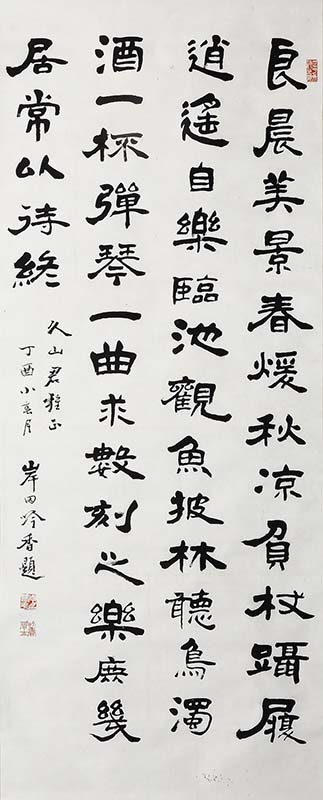 良晨美景春煖秋涼負杖躡履
逍遙自樂臨池觀魚披林聽鳥濁
酒一杯彈琴一曲求數刻之樂庶幾
居常以待終
久山君雅正
丁酉小春月
岸田吟香題